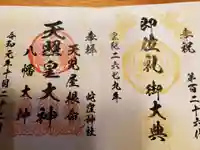 奉祝
第百二十六代
即位礼御大典
皇紀二六七九年
奉拝
蚊窪神社
天児屋根命
天照皇大神
八幡大神
令和元年十月二十二